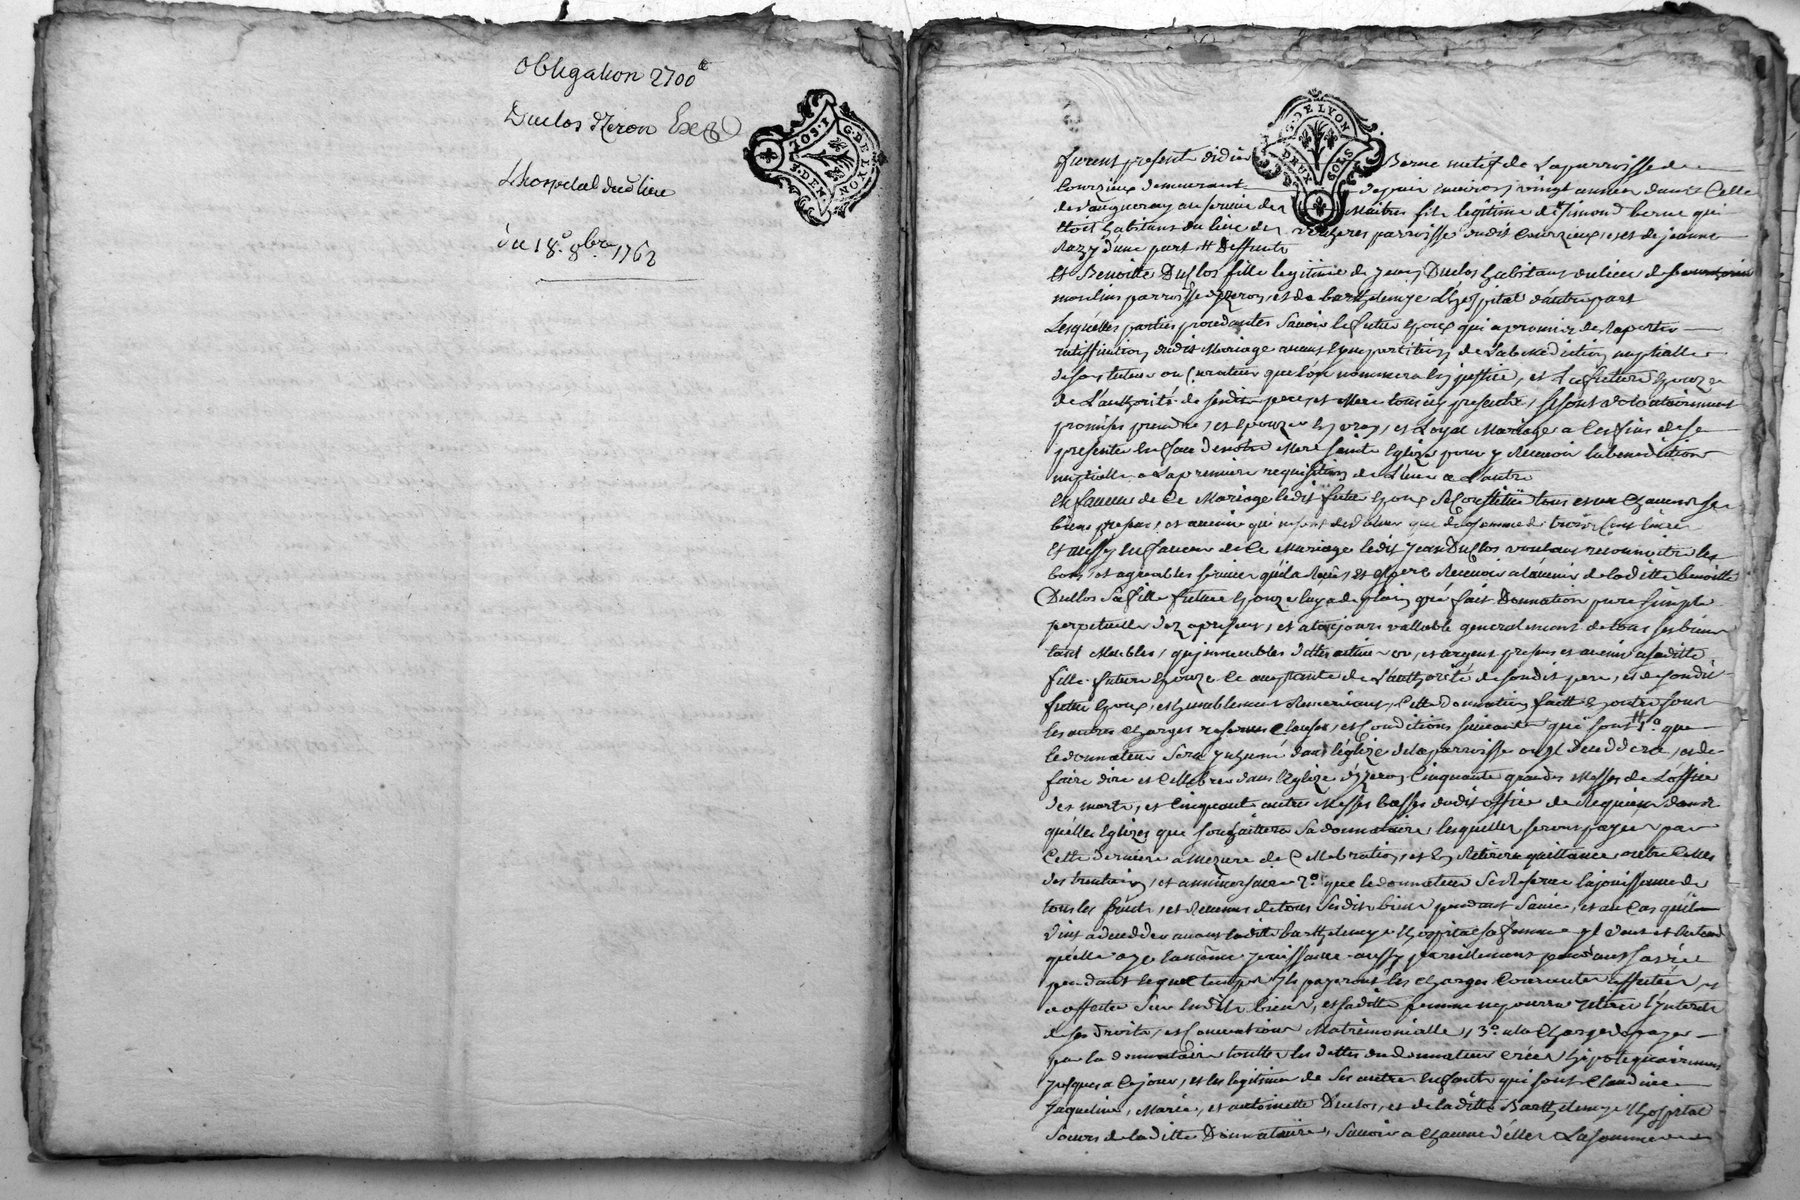 Obligation 2700 tt
Duclos d'Izeron
L'hospital dud. lieu
du 18e 8bre 1762
G. DE LYON
1. SOL
4. DEN.
G. DE LYON
DEUX SOLS
furent present didier Berne natif de la parroisse de
Courzieux demeurant depuis environ vingt années dans Celle
de vaugneray au service des Maitres fils legitime de Simond berne qui
Etoit habitant du lieu des parroisse dudit Courzieux, et de jeanne
Razy d'une part Deffunte
Et Benoitte Duclos fille legitime de jean Duclos habitant du lieu de
moulin parroisse d'yzeron, et de barthelemye L'hospital d'autre part
Lesquelles parties procedantes Savoir le futur Epoux qui a promis de Raporter
ratiffication dudit Mariage avant L'impartition de la benediction nuptialle
de son tuteur ou Curateur que l'on nommera En justice, et la future Epouze
de L'authorité de sesdits pere, et Mere tous icy presents, se sont volontairement
promises prendre, et Epouzer En vray, et Loyal Mariage a Ces fins de se
presenter En face de notre Mere Sainte Eglize pour y Recevoir la benediction
nuptialle a la premiere requisition de L'une a L'autre
En faveur de Ce Mariage ledit futur Epoux Se Constitue tous et un Chacuns ses
biens presents, et avenir qui de valeur que de la somme de trois Cent livres
Et aussy En faveur de Ce Mariage ledit Jean Duclos voulant reconnoitre les
bons, et agreables services qu'il a Reçus et Espere Recevoir a l'avenir de laditte benoitte
Duclos Sa fille future Epouze luy a de plein gré fait Donnation pure simple
perpetuelle dez apresent, et a toujours vallable generalement de tous ses biens
tant Meubles, qu'immeubles dettes actives or, et argent presents et avenir a saditte
fille future Epouze Ce acceptante de l'authorité de sondit pere, et de sondit
futur Epoux, et humblement Remerciant, Cette donnation faitte Epoutre sous
les autres charges reserves Clauses, et Conditions suivantes qui sont 1o. que
le donnateur Sera inhumé dans l'églize de la parroisse ou il Deceddera, et de
faire dire et Cellebrer dans l'Eglize d'yzeron Cinquante grandes Messes de L'office
des morts, et Cinquante autres Messes basses dudit office de Requiem dans
quelles Eglizes que souhaittera Sa donnataire, lesquelles seront payées par
Cette derniere a mezure de Cellebration, et En Retirera quittance, outre Celles
des trentains, et anniversaire 2o. que le donnateur Se Reserve la jouissance de
tous les fruits, et Revenus de tous Sesdits biens pendant Sa vie, et au Cas qu'il
vint a decedder avant laditte barthelemye L'hospital sa femme il veut et Entend
qu'elle aye la même jouissance aussy pareillement pendant sa vie
pendant lequel temps Ils payeront les charges Courantes
a affectées Sur lesdits biens, et saditte femme ne pourra retirer Interets
de ses droits, et Conventions Matrimonialle, 3o. a la Charge de payer
par la donnataire touttes les dettes du donnateur créées hipotequairement
jusques a Ce jour, et les legitimes de Ses autres Enfants qui sont Claudine
Jaqueline, Marie, et antoinette Duclos, et de laditte Barthelemye L'hospital
Soeurs de laditte Donnataire, Savoir a Chacune d'elles La somme de